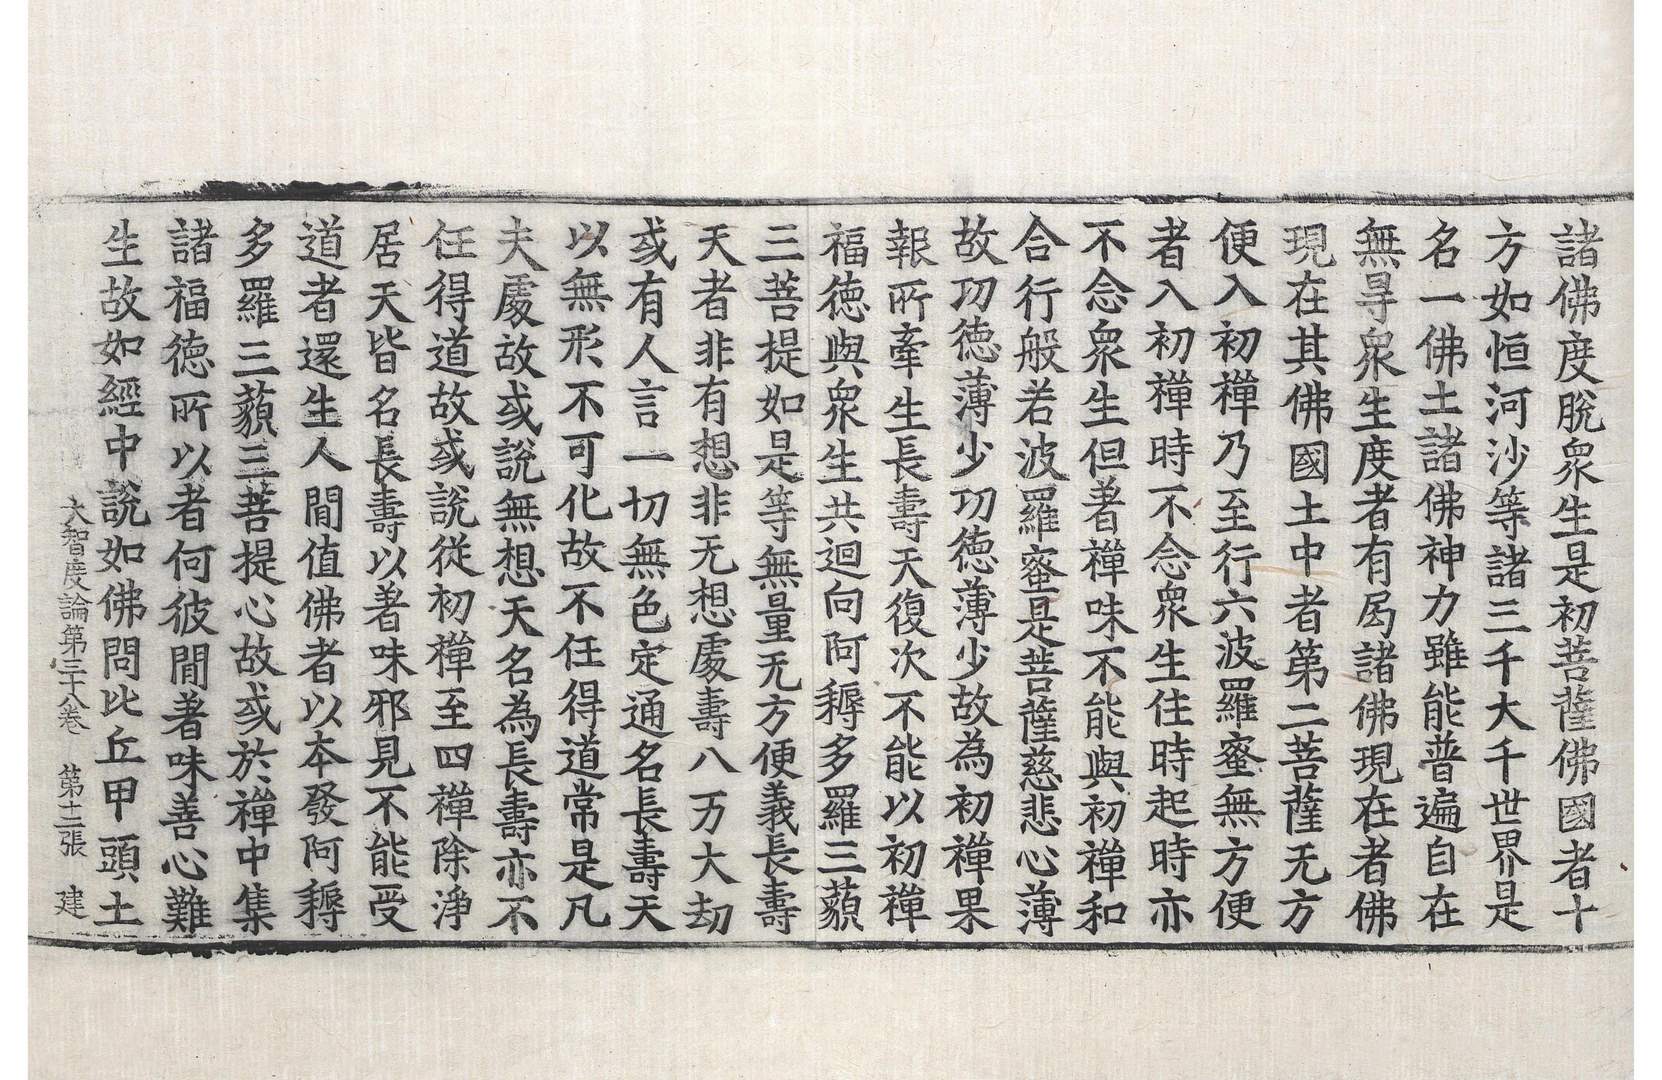 諸佛度脫衆生是初菩薩佛國者十
方如恒河沙等諸三千大千世界是
名一佛土諸佛神力雖能普遍自在
無㝵衆生度者有局諸佛現在者佛
現在其佛國土中者第二菩薩无方
便入初禪乃至行六波羅蜜無方便
者入初禪時不念衆生住時起時亦
不念衆生但著禪味不能與初禪和
合行般若波羅蜜是菩薩慈悲心薄
故功德薄少功德薄少故為初禪果
報所牽生長壽天復次不能以初禪
福德與衆生共迴向阿耨多羅三藐
三菩提如是等無量无方便義長壽
天者非有想非无想處壽八万大劫
或有人言一切無色定通名長壽天
以無形不可化故不任得道常是凡
夫處故或說無想天名為長壽亦不
任得道故或說從初禪至四禪除淨
居天皆名長壽以著味邪見不能受
道者還生人閒值佛者以本發阿耨
多羅三藐三菩提心故或於禪中集
諸福德所以者何彼閒著味善心難
生故如經中說如佛問比丘甲頭土
大智度論第三十八卷 第十二張 建